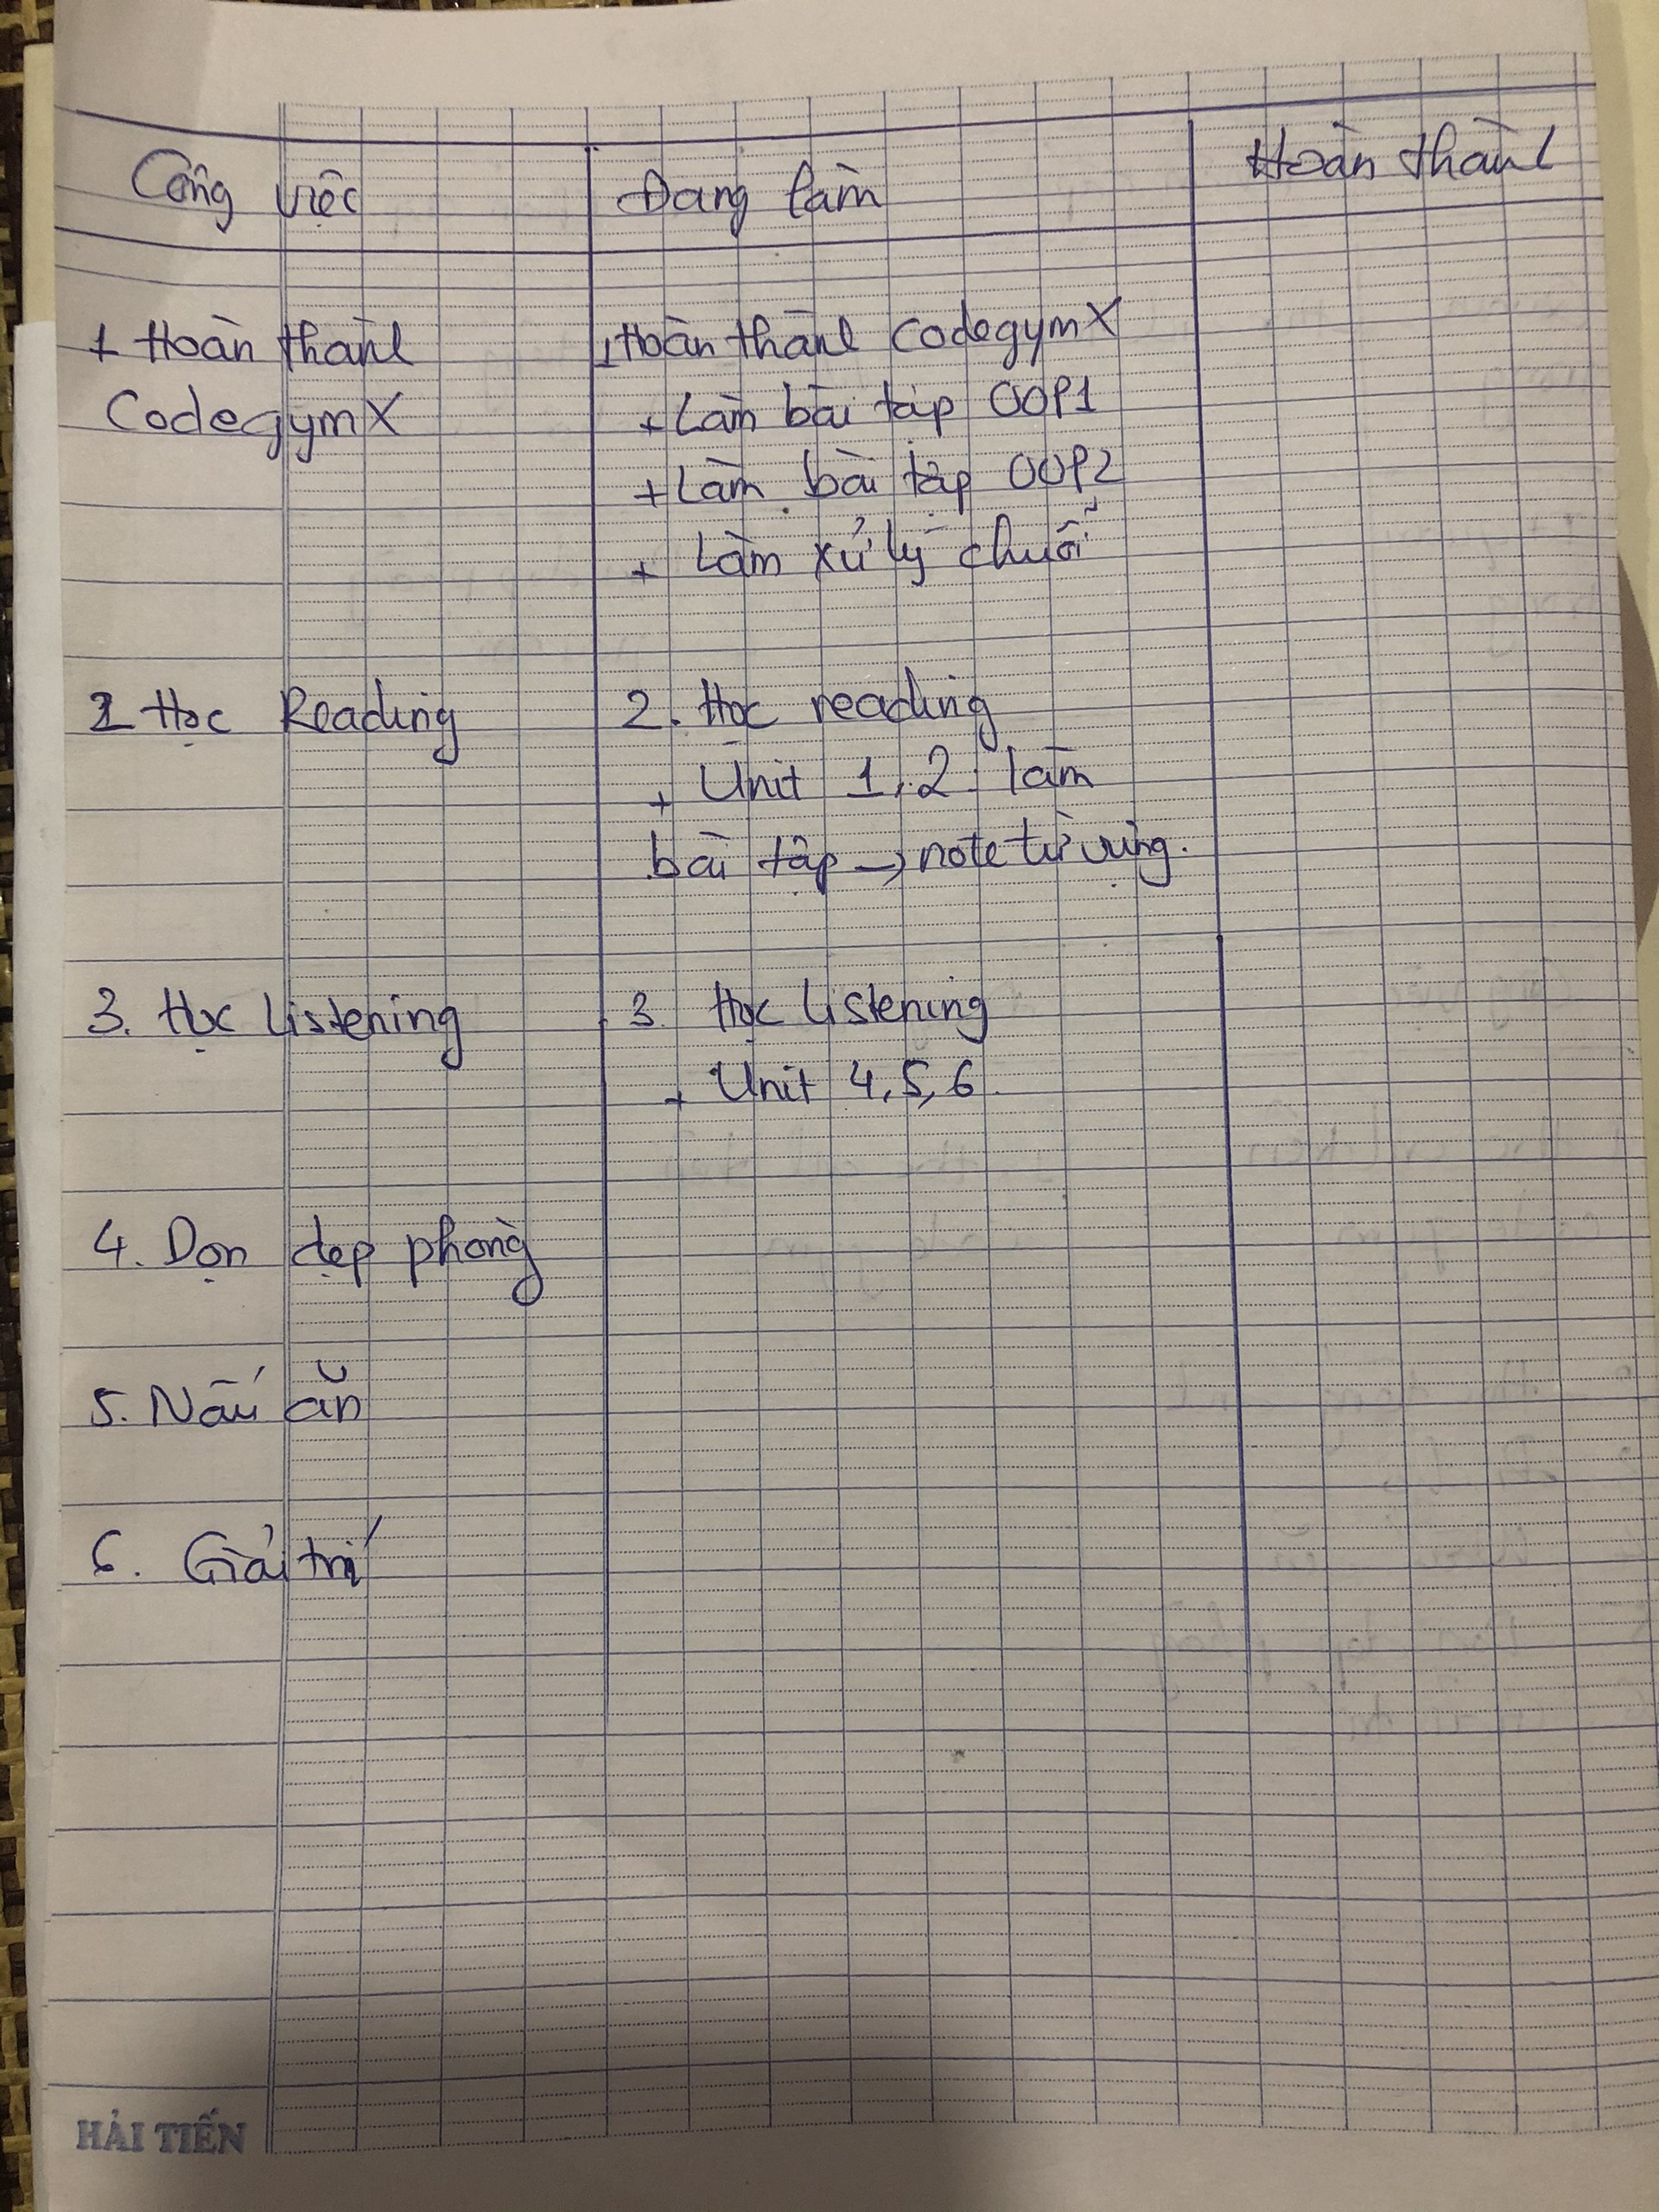 Công việc
Đang làm
Hoàn thành
1 Hoàn thành
CodegymX
1 Hoàn thành CodegymX
+ Làm bài tập OOP1
+ Làm bài tập OOP2
+ Làm xử lý chuỗi
2 Học Reading
2. Học reading
+ Unit 1, 2: làm
bài tập → note từ vựng.
3. Học Listening
3. Học Listening
+ Unit 4, 5, 6.
4. Dọn dẹp phòng
5. Nấu ăn
6. Giải trí
HẢI TIẾN